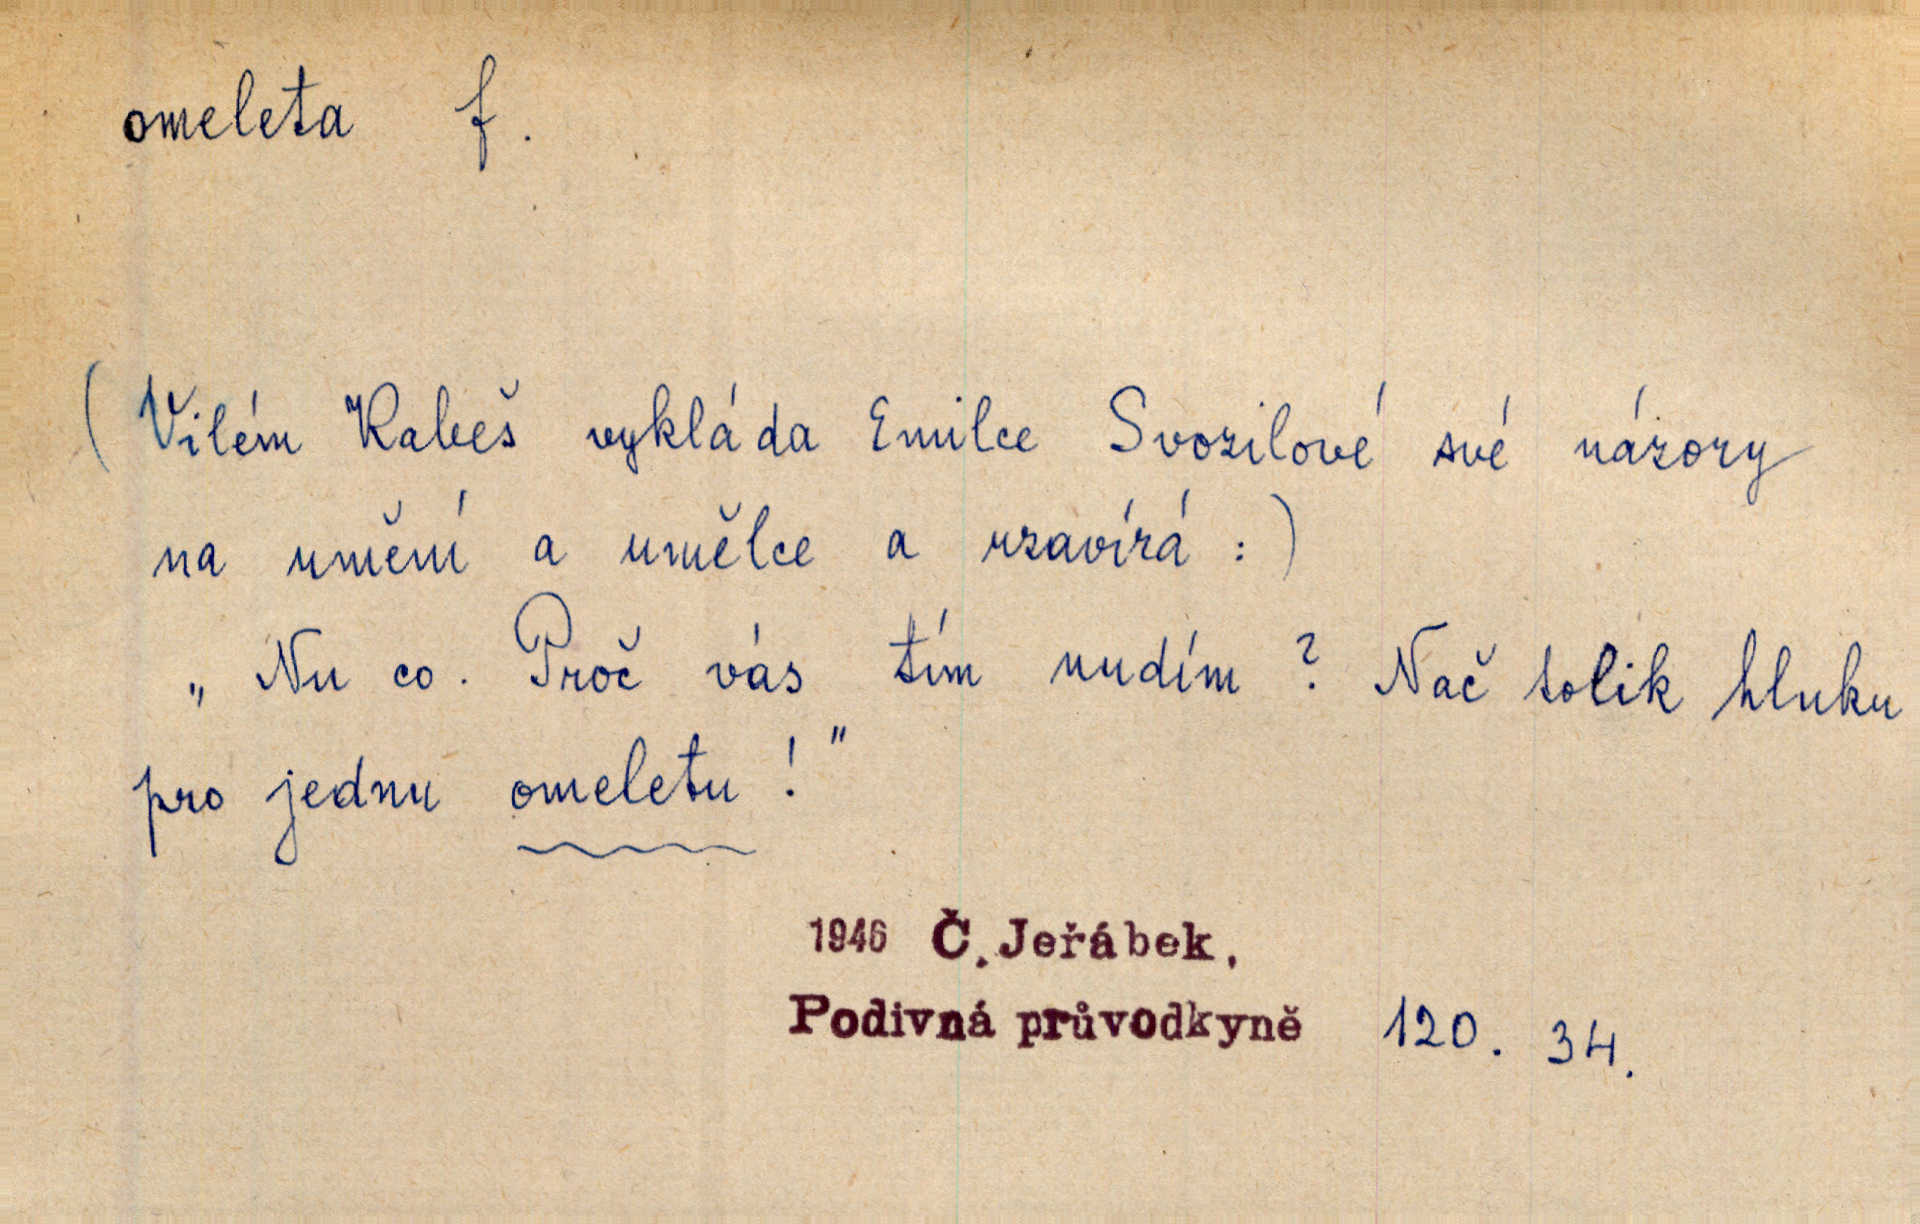 omeleta f.
(Vilém Kabeš vykláda Emilce Svozilové své názory
na umění a umělce a uzavírá :)
„Nu co. Proč vás tím nudím? Nač tolik hluku
pro jednu omeletu!"
1946 Č. Jeřábek,
Podivná průvodkyně 120. 34.